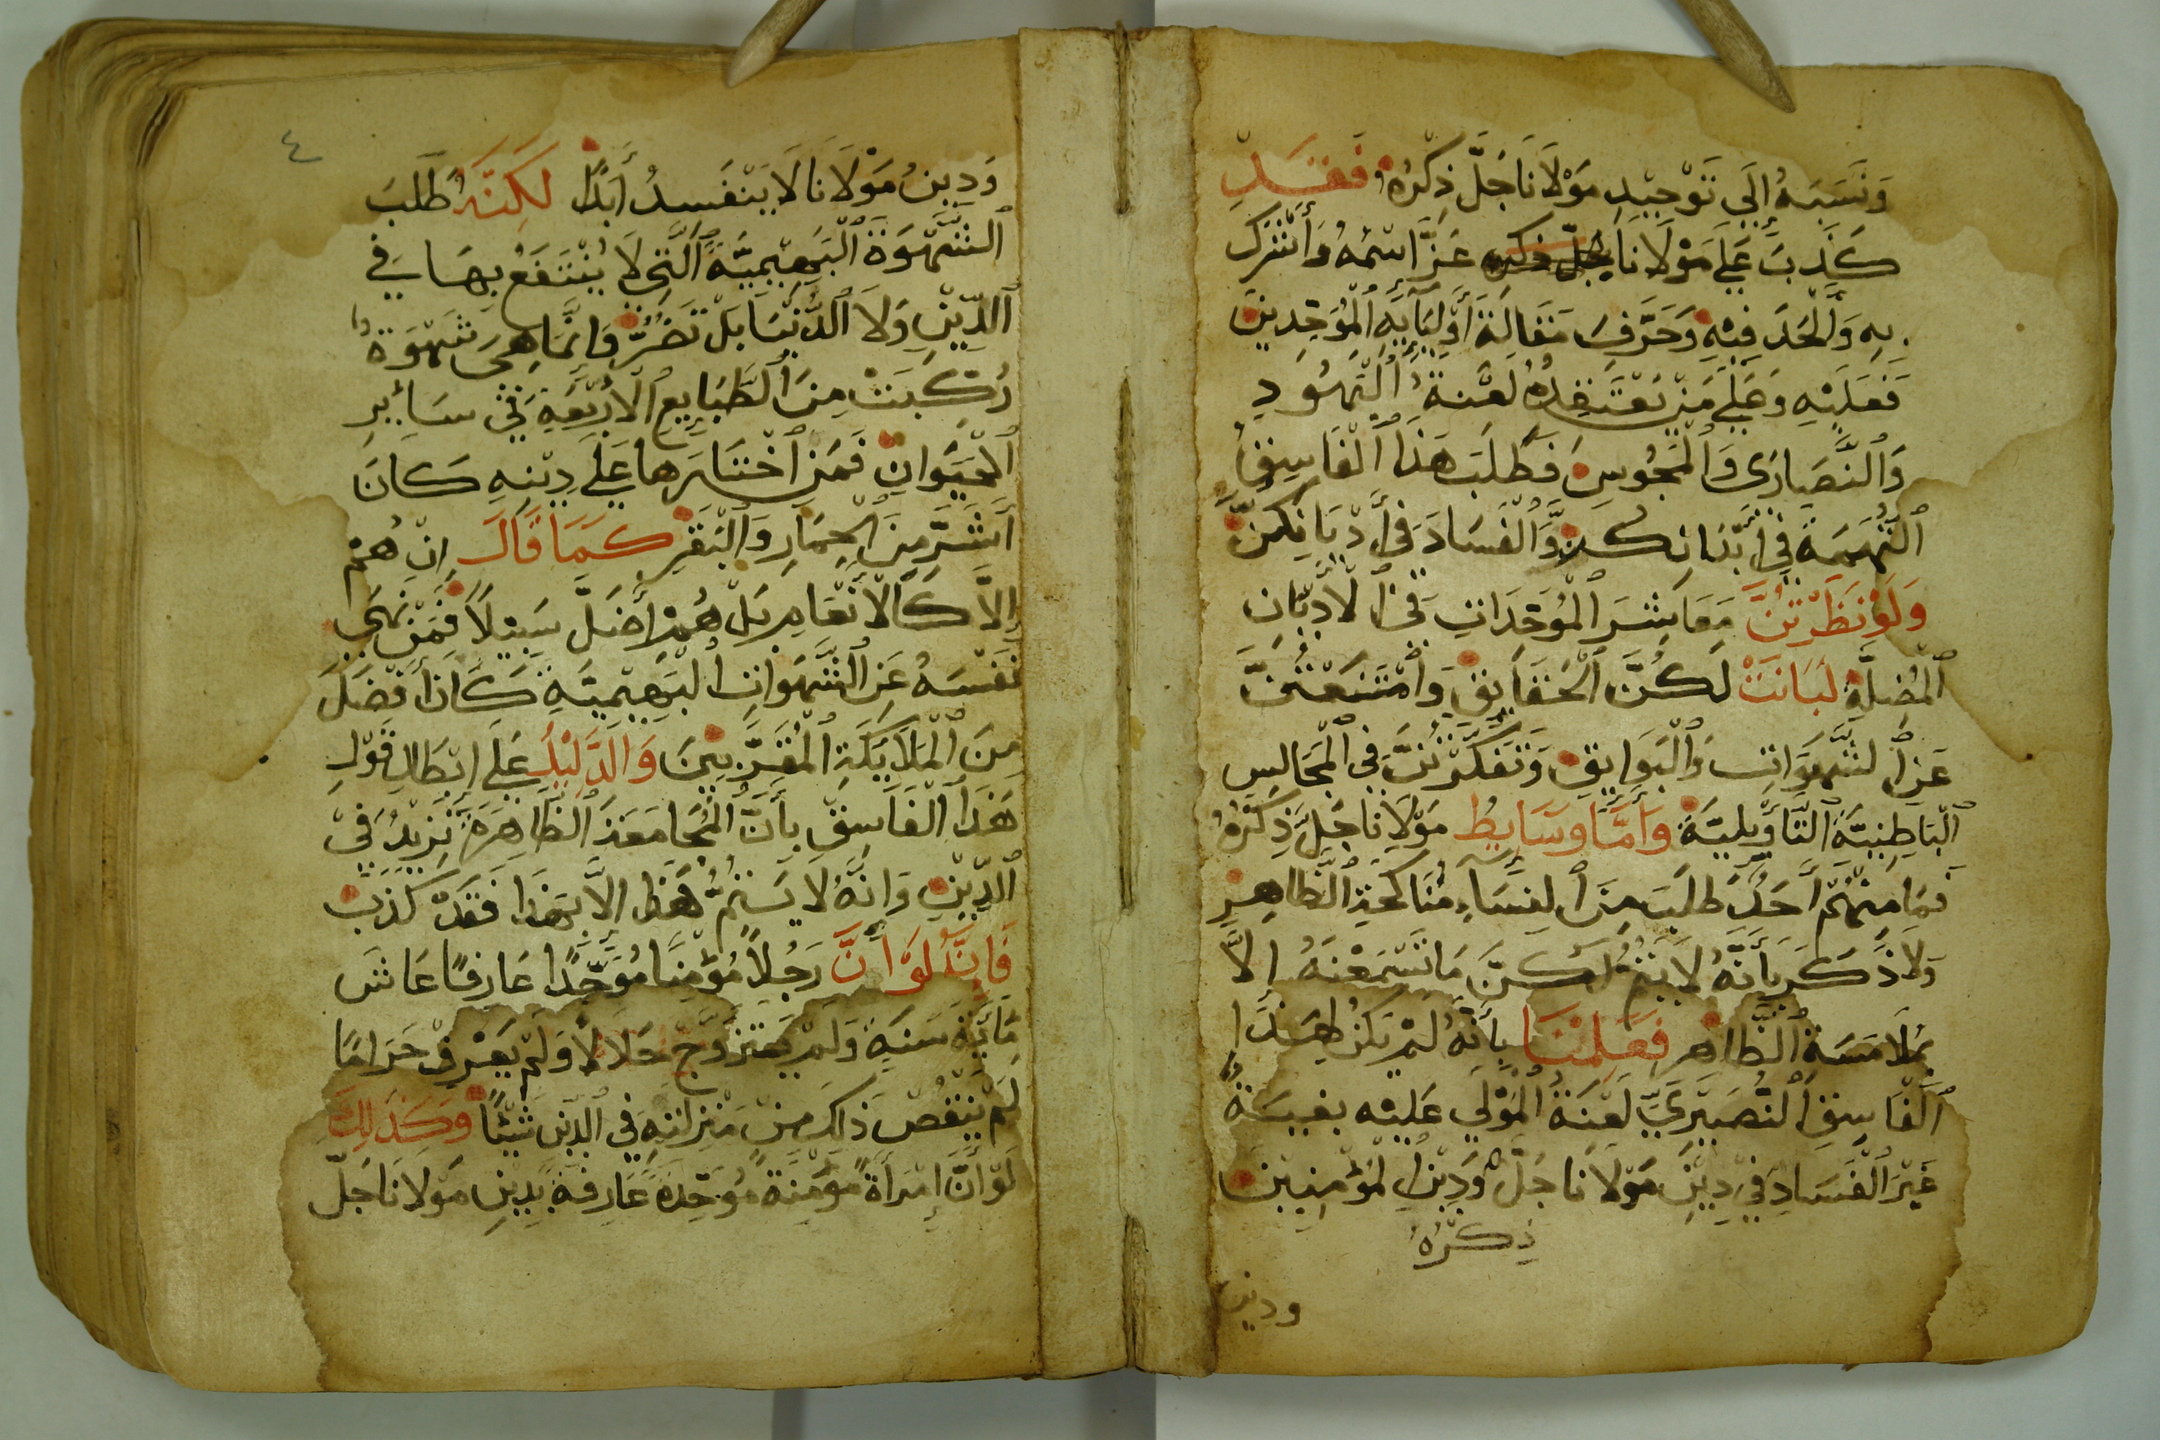 وَنَسَبَهُ إِلَى تَوْحِيدِ مَوْلَانَا جَلَّ ذِكْرُهُ فَقَدْ
كَذَبَ عَلَى مَوْلَانَا جلّ ذكره عَزَّ اسْمُهُ وَأَشْرَكَ
بِهِ وَأَلْحَدَ فِيهِ وَحَرَّفَ مَقَالَةَ أَوْلِيَايِهِ ٱلْمُوَحِّدِينَ
فَعَلَيْهِ وَعَلَى مَنْ يَعْتَقِدُهُ لَعْنَةُ ٱلْيَهُودِ
وَٱلنَّصَارَى وَٱلْمَجُوسِ فَطَلَبَ هَذَا ٱلْفَاسِقُ
ٱلتُّهَمَةَ فِي أَبْدَانِكُنَّ وَٱلْفَسَادَ فِي أَدْيَانِكُنَّ
وَلَوْ نَظَرْتُنَّ مَعَاشِرَ ٱلْمُوَحِّدَاتِ فِي ٱلْأَدْيَانِ
ٱلْمُضِلَّةِ لَبَانَتْ لَكُنَّ ٱلْحَقَايِقُ وَٱمْتَنَعْتُنَّ
عَنِ ٱلشَّهَوَاتِ وَٱلْبَوَايِقِ وَتَفَكَّرْتُنَّ فِي ٱلْمَجَالِسِ
ٱلْبَاطِنِيَّةِ ٱلتَّأْوِيلِيَّةِ وَأَمَّا وَسَايِطُ مَوْلَانَا جَلَّ ذِكْرُهُ
فَمَا مِنْهُمْ أَحَدٌ طَلَبَ مِنَ ٱلنِسَاءِ مُنَاكَحَةَ ٱلظَّاهِرِ
وَلَا ذَكَرَ بِأَنَّهُ لَا يَتِمُّ لَكُنَّ مَا تَسْمَعْنَهُ إِلَّا
بِمُلَامَسَةِ ٱلظَّاهِرِ فَعَلِمْنَا بِأَنَّهُ لَمْ يَكُنْ لِهَذَا
ٱلْفَاسِقِ ٱلنُّصَيْرِيِّ لَعْنَةُ ٱلْمَوْلَى عَلَيْهِ بغيَةً
غَيْرَ ٱلْفَسَادِ فِي دِيْنِ مَوْلَانَا جَلَّ وَدِيْنِ ٱلمُؤْمِنِينَ
ذِكْرُهُ
ودين
٤
وَدِينُ مَوْلَانَا لَا يَنْفَسِدُ أَبَدًا لَكِنَّهُ طَلَبَ
ٱلشَّهْوَةَ ٱلْبَهِيْمِيَّةَ ٱلَّتِي لَا يُنْتَفَعُ بِهَا فِي
ٱلدِّيْنِ وَلَا ٱلدُّنْيَا بَلْ تَضُرُّ وَإِنَّمَا هِيَ شَهْوَةٌ
رُكِّبَتْ مِنَ ٱلطَّبَايِعِ ٱلْأَرْبَعَةِ فِي سَايِرِ
ٱلْحَيَوَانِ فَمَنِ ٱخْتَارَهَا عَلَى دِيْنِهِ كَانَ
أَشَرَّ مِنَ ٱلْحِمَارِ وَٱلْبَقَرِ كَمَا قَالَ إِنْ هُمْ
إِلَّا كَٱلْأَنْعَامِ بَلْ هُمْ أَضَلُّ سَبِيْلًا فَمَنْ نَهَى
نَفْسَهُ عَنِ ٱلشَّهَوَاتِ ٱلبَهِيْمِيَّةِ كَانَ أَفْضَلَ
مِنَ ٱلْمَلَايِكَةِ ٱلْمُقَرَّبِينَ وَالدَّلِيْلُ عَلَى إِبْطَالِ قَوْلِ
هَذَا ٱلْفَاسِقِ بِأَنَّ ٱلْمُجَامَعَةَ ٱلظَّاهِرَةَ تَزِيدُ فِي
ٱلدِّيْنِ وَإِنَّهُ لَا يَسْتَتِمُّ هَذَا إِلَّا بِهَذَا فَقَدْ كَذَبَ
فَإِنَّهُ لَوْ أَنَّ رَجُلًا مُؤْمِنًا مُوَحِّدًا عَارِفًا عَاشَ
مَايَةَ سَنَةٍ وَلَمْ يَتَزَوَّجْ حَلَالًا وَلَمْ يَعْرِفْ حَرَامًا
لَمْ يَنْقُصْ ذَلِكَ مِنْ مَنْزِلَتِهِ فِي ٱلدِّيْنِ شَيْئًا وَكَذَلِكَ
لَوْ أَنَّ إِمْرَأَةً مُؤْمِنَةً مُوَحِّدَةً عَارِفَةً بِدِيْنِ مَوْلَانَا جَلَّ